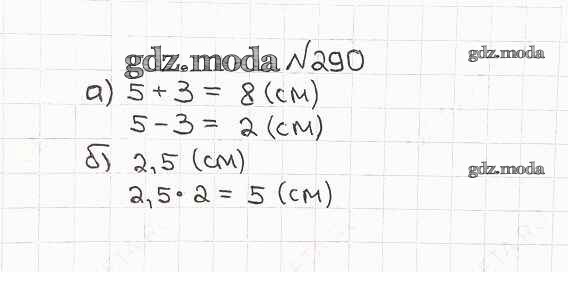 gdz.moda №290
gdz.moda
а) 5 + 3 = 8 (см)
5 - 3 = 2 (см)
б) 2,5 (см)
gdz.moda
2,5 · 2 = 5 (см)